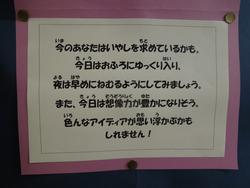 今のあなたはいやしを求めているかも。
今日はおふろにゆっくり入り、
夜は早めにねむるようにしてみましょう。
また、今日は想像力が豊かになりそう。
色んなアイディアが思い浮かぶかも
しれません!